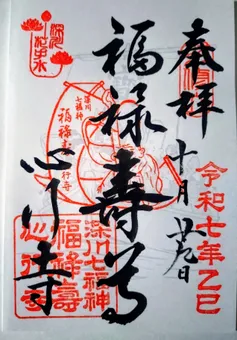 奉拝
令和七年乙巳
十月廿九日
福禄壽尊
心行寺
深川
七福神
福禄寿
心行寺
深川七福神
福禄壽
心行寺